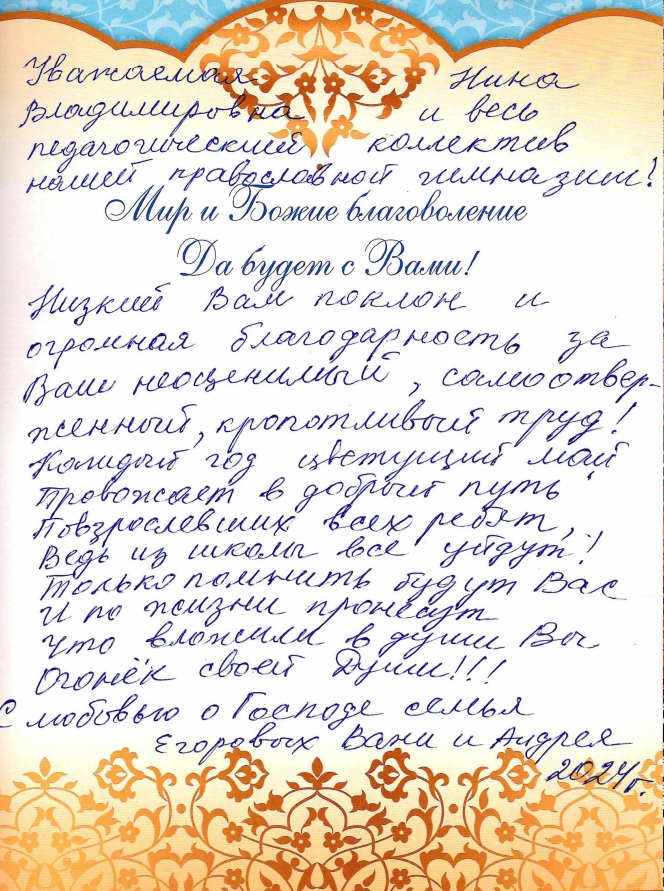 Уважаемая Нина
Владимировна и весь
педагогический коллектив
нашей православной гимназии!
Мир и Божие благоволение
Да будет с Вами!
Низкий Вам поклон и
огромная благодарность за
Ваш неоценимый, самоотвер-
женный, кропотливый труд!
Каждый год цветущий май
Провожает в добрый путь
Повзрослевших всех ребят,
Ведь из школы все уйдут!
Только помнить будут Вас
И по жизни пронесут
Что вложили в души Вы
Огонёк своей Души!!!
С любовью о Господе семья
Егоровых Вани и Андрея
2024г.